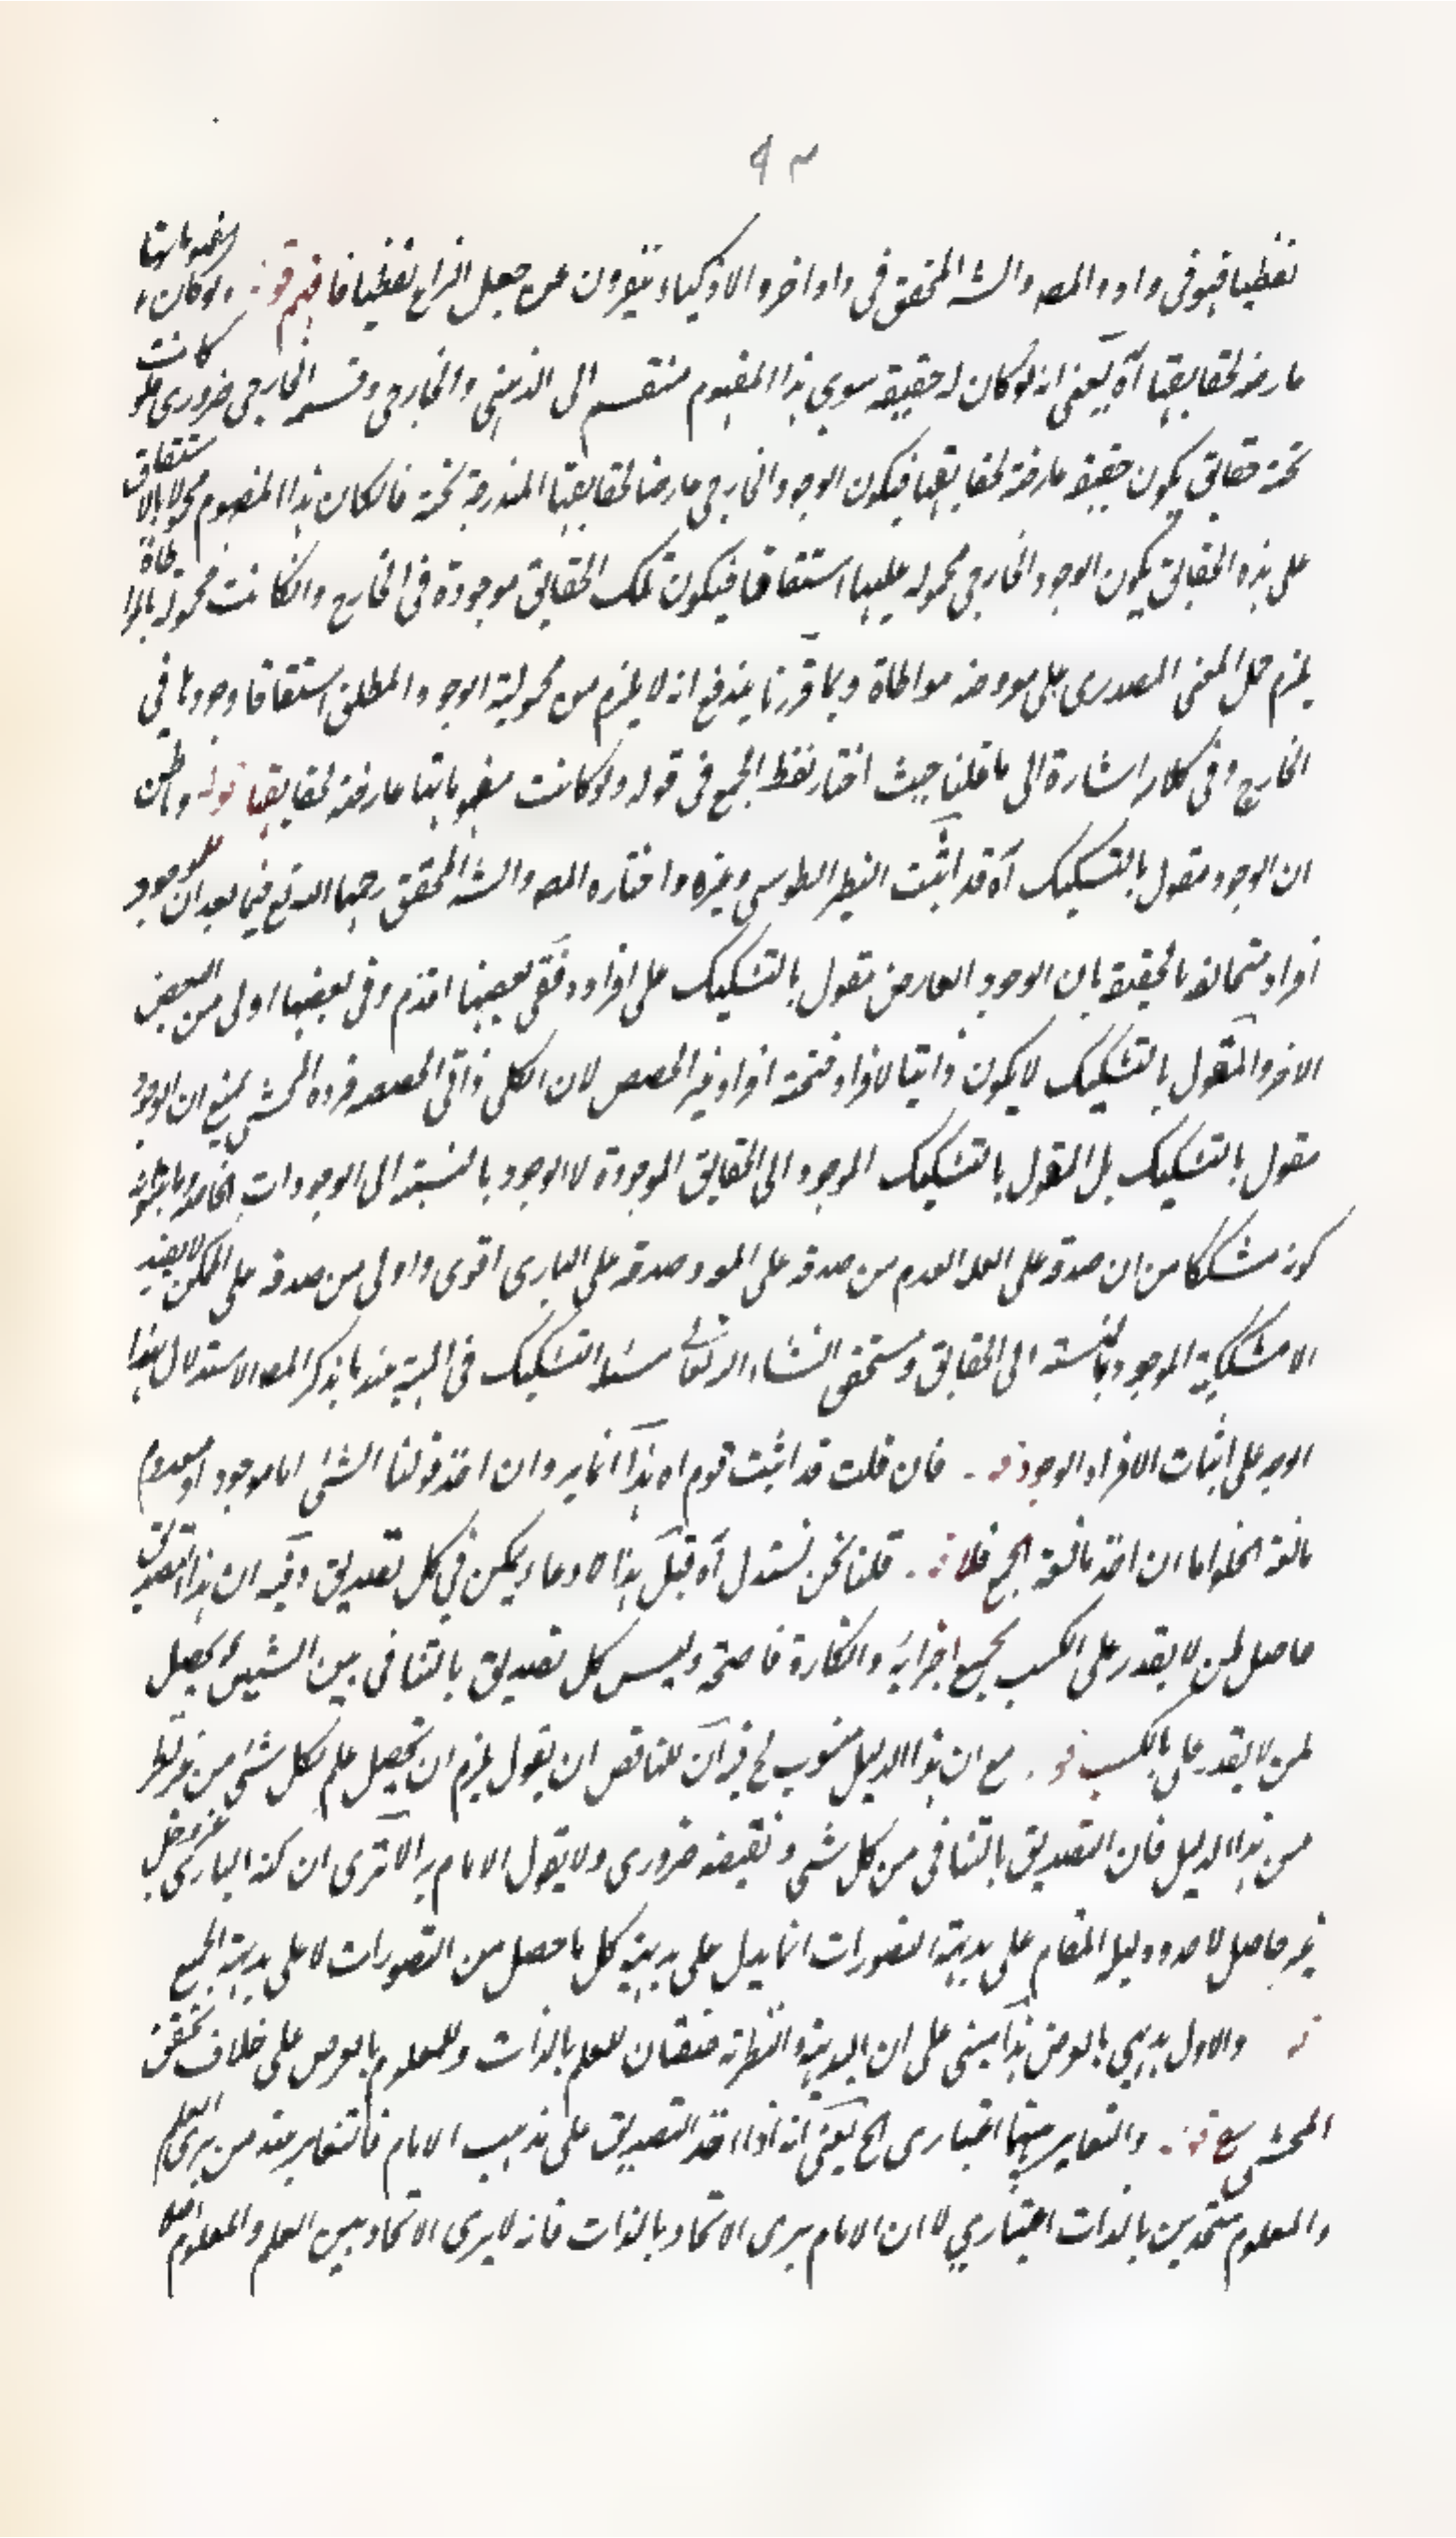 ٩٣
لفظيا فهو فى واد والمصه والشه المحقق فى واد اخر والاذكياء يتنفرون عن جعل النزاع لفظيا فافهم قوله ولو كان مفهوماتها
عارضة لحقايقها آه يعنى انه لو كان له حقيقة سوى هذا المفهوم منقسم الى الذهنى والخارجى وقسمه الخارجى ضرورى فلو كانت
تحته حقايق يكون حقيقة عارضة لحقايقها فيكون الوجود الخارجى عارضا لحقايقها المندرجة تحته فان كان هذا المفهوم محمولا بالاشتقاق
على هذه الحقايق يكون الوجود الخارجى محمولا عليها اشتقاقا فيكون تلك الحقايق موجودة فى الخارج وان كانت محمولة بالمواطاة
يلزم حمل المعنى المصدرى على معروضه مواطاة وبما قررنا يندفع انه لا يلزم من محمولية الوجود المطلق اشتقاقا وجودها فى
الخارج وفى كلامه اشارة الى ما قلنا حيث اختار لفظ الجمع فى قوله ولو كانت مفهوماتها عارضة لحقايقها قوله وما ظن
ان الوجود مقول بالتشكيك آه قد اثبت النصير الطوسى وغيره واختاره المصه والشه المحقق رحمهما الله تع فيما بعد ان للوجود
افراد متخالفة بالحقيقة بان الوجود العارض مقول بالتشكيك على افراده ففى بعضها اقدم وفى بعضها اولى من البعض
الاخر والمقول بالتشكيك لا يكون ذاتيا لافراد فتحته افراد غير الحصص لان الكلى ذاتى لحصصه فرده المحشى بمنع ان الوجود
مقول بالتشكيك بل المقول بالتشكيك الموجود الى الحقايق الموجودة لا الوجود بالنسبة الى الوجودات الخاصة وما
كونه مشككا من ان صدقه على العلة اقدم من صدقه على المعلول وصدقه على البارى اقوى واولى من صدقه على الممكن لا يفيد
الا مشككية الموجود بالنسبة الى الحقايق وستحقق انشاء الله تعالى مسئلة التشكيك فى الهية عند ما يذكر المصه الاستدلال بهذا
الوجه على اثبات الافراد الوجود قوله فان قلت قد اثبت قوم اه هذا انما يرد ان اخذ قولنا الشئ اما موجود او معدوم
مانعة الخلو اما ان اخذ مانعة الجمع فلا قوله قلنا نحن نستدل آه قيل هذا الادعاء يمكن فى كل تصديق وفيه ان هذا التصديق
حاصل لمن لا يقدر على الكسب بجميع اجزائه وانكاره فاضحة وليس كل تصديق بالتنافى بين الشيئين يحصل
لمن لا يقدر على الكسب قوله مع ان هذا الدليل منسوب الخ للناقض ان يقول يلزم ان يحصل علم بكل شئ من غير نظر
من هذا الدليل فان التصديق بالتنافى من كل شى ونقيضه ضرورى ولا يقول الامام به الا ترى ان كنه البارى عز وجل
غير حاصل لاحد ودليل المقام على بديهية التصورات انما يدل على بديهية كل ما حصل من التصورات لا على بديهية الجميع
قوله والاول بديهى بالعرض هذا يبنى على ان البديهة والنظرية صفتان للعلم بالذات وللمعلوم بالعرض على خلاف تحقيق
المحشى مع قوله والتغاير بينهما اعتبارى الخ يعنى انه اذا اخذ التصديق على مذهب الامام فالتغاير عند من يرى العلم
والمعلوم متحدين بالذات اعتبارى لا ان الامام يرى الاتحاد بالذات فانه لا يرى الاتحاد بين العلم والمعلوم اصلا